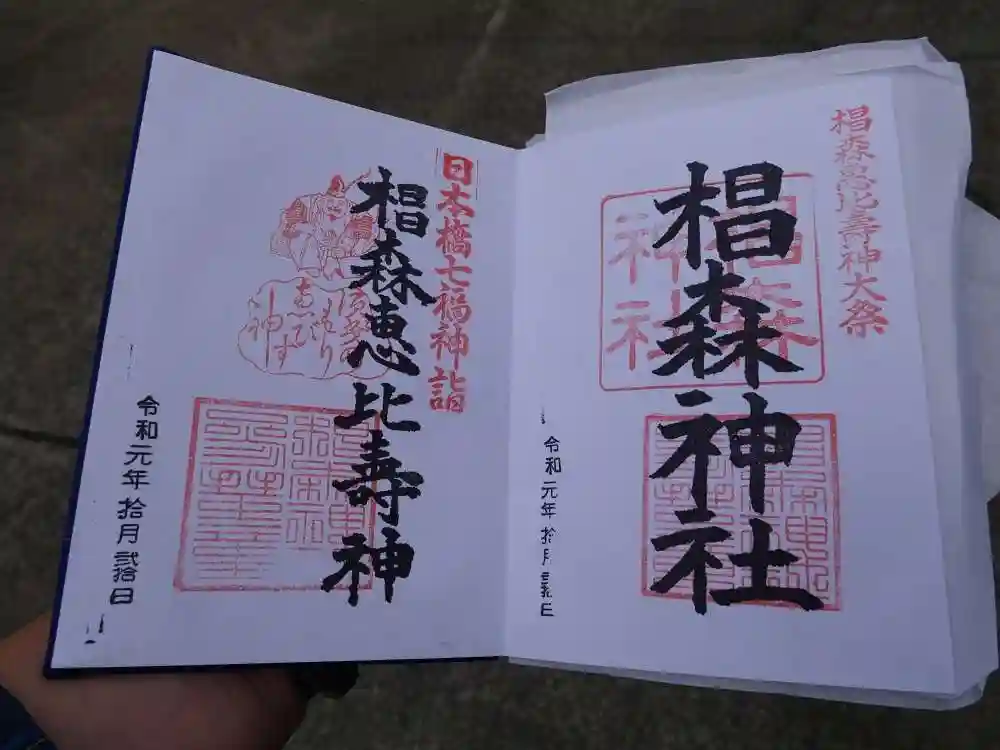 椙森恵比壽神大祭
椙森
神社
椙森神社
令和元年拾月弐拾日
日本橋七福神詣
椙森恵比壽神
ゑびす
神
令和元年拾月弐拾日